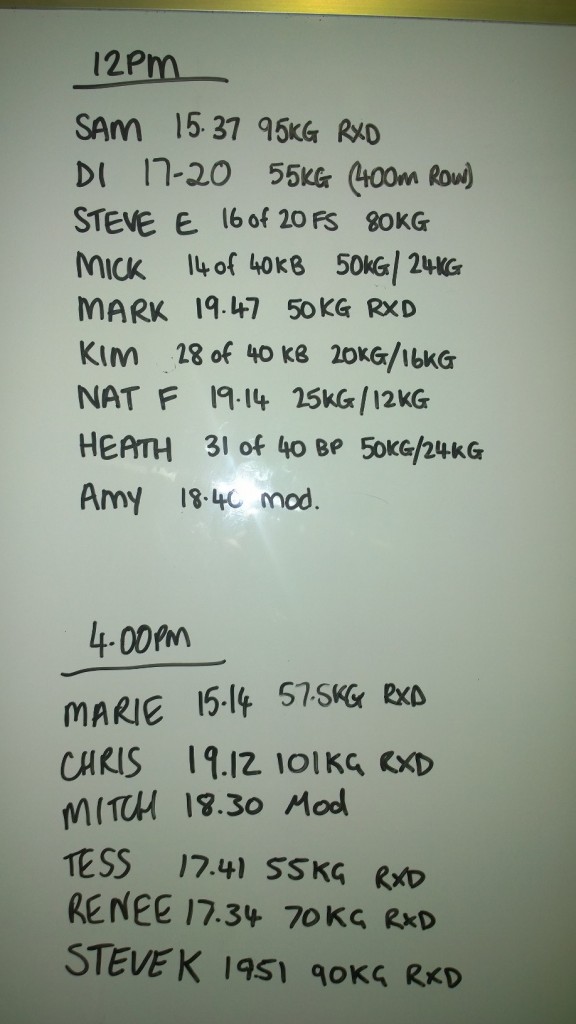 12PM
SAM 15.37 95KG RXD
DI 17-20 55KG (400m ROW)
STEVE E 16 of 20 FS 80KG
MICK 14 of 40KB 50KG/24KG
MARK 19.47 50KG RXD
KIM 28 of 40 KB 20KG/16KG
NAT F 19.14 25KG/12KG
HEATH 31 of 40 BP 50KG/24KG
Amy 18.40 mod.
4.00PM
MARIE 15.14 57.5KG RXD
CHRIS 19.12 101KG RXD
MITCH 18.30 Mod
TESS 17.41 55KG RXD
RENEE 17.34 70KG RXD
STEVE K 1951 90KG RXD